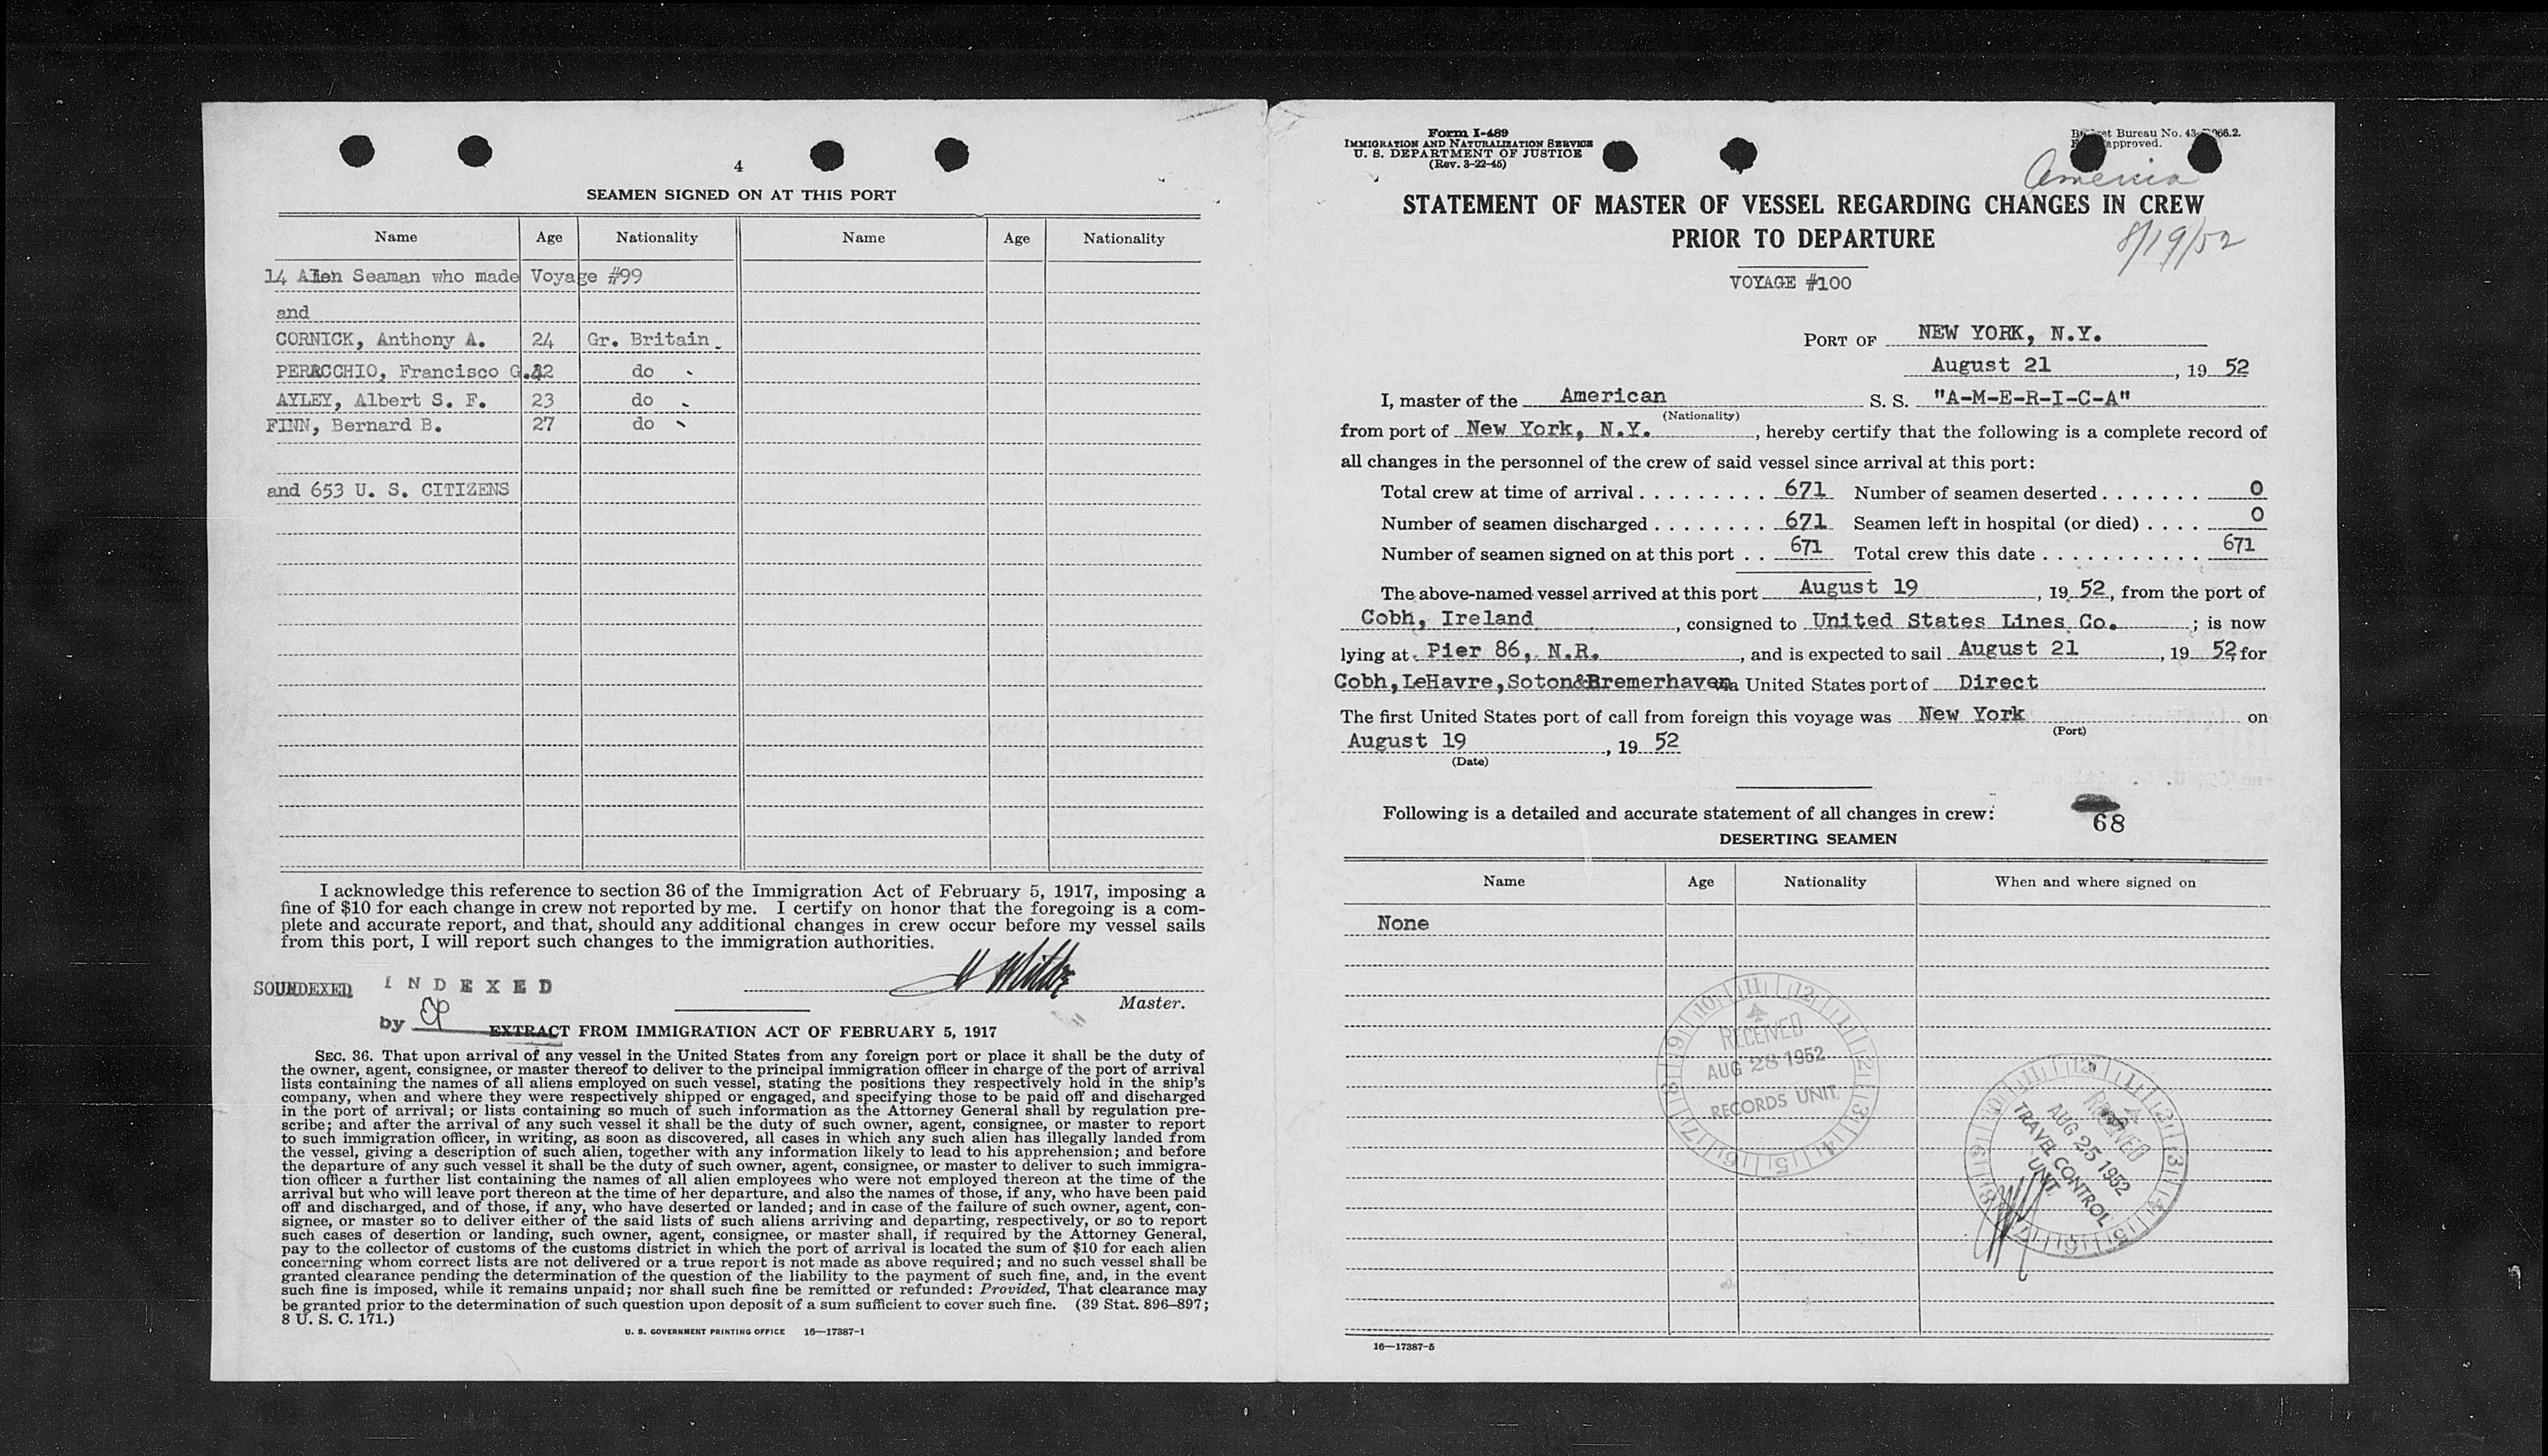 4
SEAMEN SIGNED ON AT THIS PORT
Name Age Nationality Name Age Nationality
14 Alien Seaman who made Voyage #99
and
CORNICK, Anthony A. 24 Gr. Britain
PERACCHIO, Francisco G. 32 do
AYLEY, Albert S. F. 23 do
FINN, Bernard B. 27 do
and 653 U. S. CITIZENS
I acknowledge this reference to section 36 of the Immigration Act of February 5, 1917, imposing a
fine of $10 for each change in crew not reported by me. I certify on honor that the foregoing is a com-
plete and accurate report, and that, should any additional changes in crew occur before my vessel sails
from this port, I will report such changes to the immigration authorities.
SOUNDEXED INDEXED
Master.
by
EXTRACT FROM IMMIGRATION ACT OF FEBRUARY 5, 1917
SEC. 36. That upon arrival of any vessel in the United States from any foreign port or place it shall be the duty of
the owner, agent, consignee, or master thereof to deliver to the principal immigration officer in charge of the port of arrival
lists containing the names of all aliens employed on such vessel, stating the positions they respectively hold in the ship's
company, when and where they were respectively shipped or engaged, and specifying those to be paid off and discharged
in the port of arrival; or lists containing so much of such information as the Attorney General shall by regulation pre-
scribe; and after the arrival of any such vessel it shall be the duty of such owner, agent, consignee, or master to report
to such immigration officer, in writing, as soon as discovered, all cases in which any such alien has illegally landed from
the vessel, giving a description of such alien, together with any information likely to lead to his apprehension; and before
the departure of any such vessel it shall be the duty of such owner, agent, consignee, or master to deliver to such immigra-
tion officer a further list containing the names of all alien employees who were not employed thereon at the time of the
arrival but who will leave port thereon at the time of her departure, and also the names of those, if any, who have been paid
off and discharged, and of those, if any, who have deserted or landed; and in case of the failure of such owner, agent, con-
signee, or master so to deliver either of the said lists of such aliens arriving and departing, respectively, or so to report
such cases of desertion or landing, such owner, agent, consignee, or master shall, if required by the Attorney General,
pay to the collector of customs of the customs district in which the port of arrival is located the sum of $10 for each alien
concerning whom correct lists are not delivered or a true report is not made as above required; and no such vessel shall be
granted clearance pending the determination of the question of the liability to the payment of such fine, and, in the event
such fine is imposed, while it remains unpaid; nor shall such fine be remitted or refunded: Provided, That clearance may
be granted prior to the determination of such question upon deposit of a sum sufficient to cover such fine. (39 Stat. 896–897;
8 U. S. C. 171.)
U. S. GOVERNMENT PRINTING OFFICE 16—17387-1
Form I-489
IMMIGRATION AND NATURALIZATION SERVICE
U. S. DEPARTMENT OF JUSTICE
(Rev. 3-22-45)
Bureau No. 43-
approved.
America
STATEMENT OF MASTER OF VESSEL REGARDING CHANGES IN CREW
PRIOR TO DEPARTURE
8/19/52
VOYAGE #100
PORT OF NEW YORK, N.Y.
August 21, 19 52
I, master of the American S. S. "A-M-E-R-I-C-A"
(Nationality)
from port of New York, N.Y., hereby certify that the following is a complete record of
all changes in the personnel of the crew of said vessel since arrival at this port:
Total crew at time of arrival . . . . . . . . . 671 Number of seamen deserted . . . . . . . 0
Number of seamen discharged . . . . . . . . 671 Seamen left in hospital (or died) . . . . 0
Number of seamen signed on at this port . . 671 Total crew this date . . . . . . . . . . . 671
The above-named vessel arrived at this port August 19, 19 52, from the port of
Cobh, Ireland, consigned to United States Lines Co. ; is now
lying at Pier 86, N.R., and is expected to sail August 21, 19 52, for
Cobh,LeHavre,Soton&Bremerhaven via United States port of Direct
The first United States port of call from foreign this voyage was New York on
(Port)
August 19, 19 52
(Date)
Following is a detailed and accurate statement of all changes in crew:
68
DESERTING SEAMEN
Name Age Nationality When and where signed on
None
RECEIVED
AUG 28 1952
RECORDS UNIT
RECEIVED
AUG 25 1952
TRAVEL CONTROL
UNIT
16—17387-5